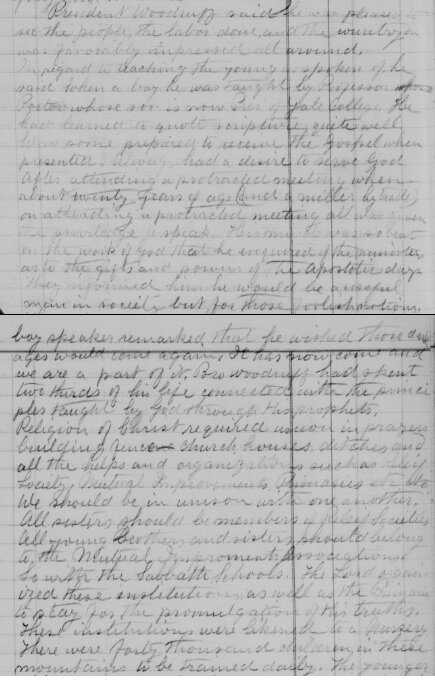 President Woodruff said he was pleased to
see the people, the labor done, and the
was favorably impressed all around.
In regard to teaching the young as spoken of, he
said when a boy he was taught by Professor
Porter whose son is now Pres of Yale College. He
had learned to quote scripture quite well
Was some prepared to receive the Gospel when
presented. Always had a desire to serve God
After attending a protracted meeting when
about twenty years of age (and a miller by trade)
on attending a protracted meeting all was given
the privilege to speak. His mind was so bent
on the work of God that he enquired of the minister
as to the gifts and powers of the Apostolic days
They informed him he would be a useful
man in society but for those foolish notions.
boy speaker remarked that he wished those dark
ages would come again. It has now come and
we are a part of it. Bro Woodruff had spent
two thirds of his life connected with the princi
ples taught by God through His prophets.
Religion of Christ required union in prayers
building fences church houses, ditches and
all the helps and organizations such as relief
Society, Mutual Improvements, Primaries etc etc
We should be in unison with one another.
All sisters should be members of Relief Societies
All young brothers and sisters should belong
to the Mutual Improments associations
so with the Sabbath Schools. The Lord organi
ized these institutions, as well as the Primaries
to stay for the promulgation of His truths.
These institutions were likened to a Nursery
There were forty thousand children in these
mountains to be trained daily. The younger